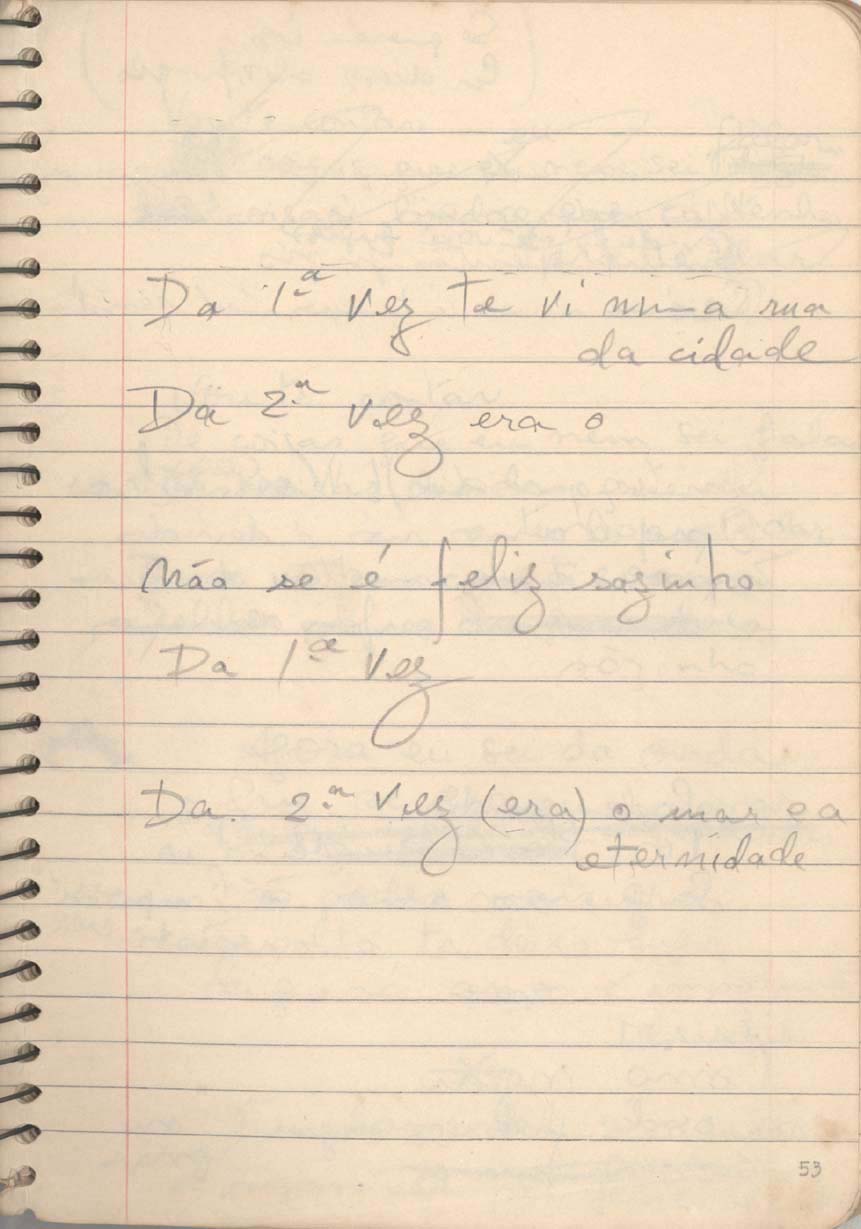 Da 1ª vez te vi numa rua
da cidade
Da 2ª vez era o
não se é feliz sozinho
Da 1ª vez
Da. 2ª vez (era) o mar e a
eternidade
53